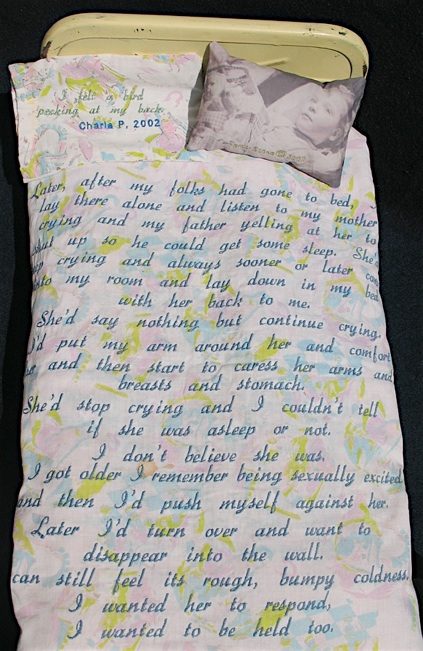 I felt a bird
pecking at my back.
Charla P. 2002
Later, after my folks had gone to bed,
lay there alone and listen to my mother
crying and my father yelling at her to
shut up so he could get some sleep. She'd
crying and always sooner or later
into my room and lay down in my bed
with her back to me.
She'd say nothing but continue crying.
I'd put my arm around her and comfort
and then start to caress her arms and
breasts and stomach.
She'd stop crying and I couldn't tell
if she was asleep or not.
I don't believe she was.
I got older I remember being sexually excited
and then I'd push myself against her.
Later I'd turn over and want to
disappear into the wall.
can still feel its rough, bumpy coldness.
I wanted her to respond,
I wanted to be held too.